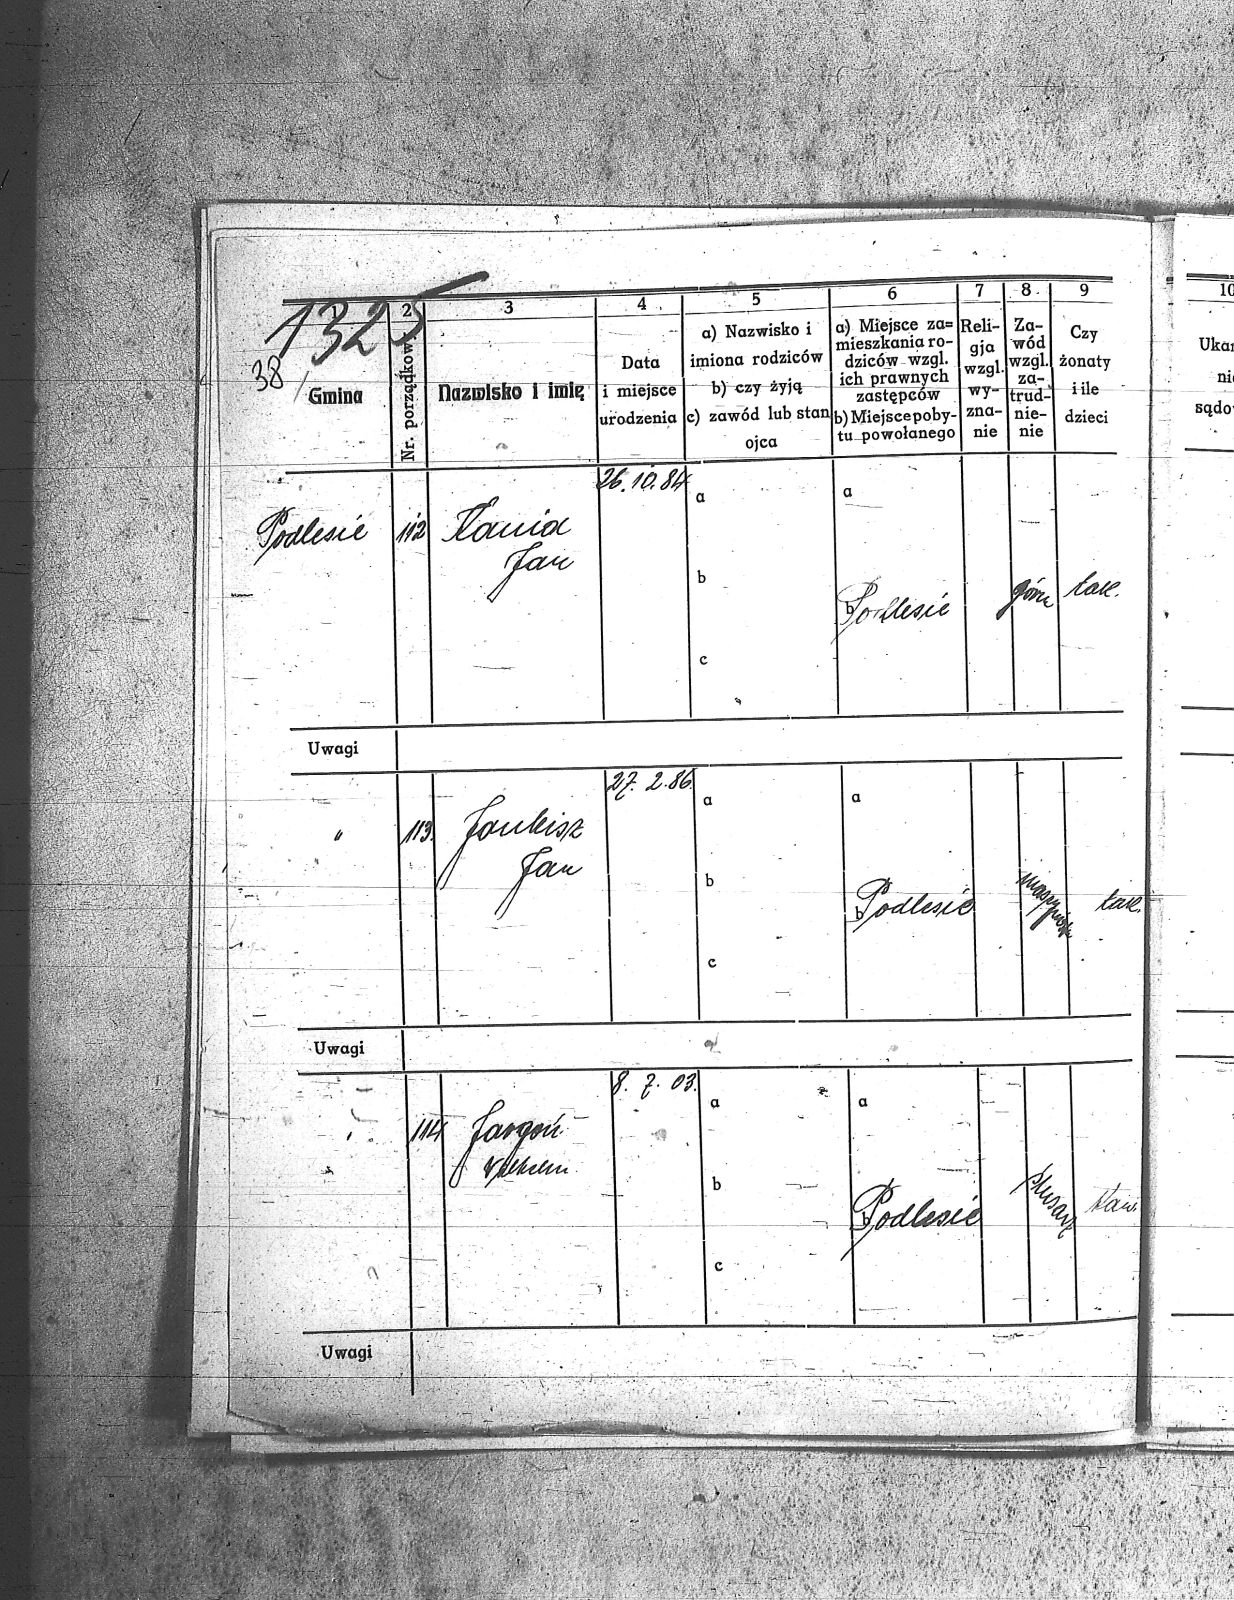 1325
38
1 2 3 4 5 6 7 8 9
Gmina
Nr. porządkowy
Nazwisko i imię
Data
i miejsce
urodzenia
a) Nazwisko i
imiona rodziców
b) czy żyją
c) zawód lub stan
ojca
a) Miejsce za=
mieszkania ro-
dziców wzgl.
ich prawnych
zastępców
b) Miejsce poby-
tu powołanego
Reli-
gja
wzgl.
wy-
zna-
nie
Za-
wód
wzgl.
za-
trud-
nie-
nie
Czy
żonaty
i ile
dzieci
10
Podlesie 112 Kania
Jan
26.10.84
a
b
c
a
b Podlesie
górn
tak.
Uwagi
" 113 Jankisz
Jan
27. 2.86.
a
b
c
a
b Podlesie
tak.
Uwagi
" 114 Jargoń
Wilhelm
8. 7. 03.
a
b
c
a
b Podlesie
ślusarz
Uwagi